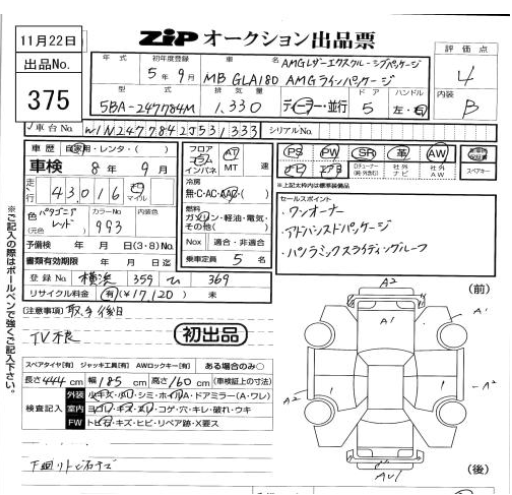 11月22日
出品No.
375
ZIP オークション出品票
評価点
4
内装
B
年式
初年度登録
5年 9月
車名
AMGレザーエクスクルーシブパッケージ
MB GLA180 AMGラインパッケージ
型式
5BA-247784M
排気量
1,330
ディーラー・並行
ドア
5
ハンドル
左・右
車台No.
W1N2477842J531333
シリアルNo.
車歴 自家用・レンタ・( )
車検 8年 9月
走行 43,016 キロ マイル
色 パタゴニアレッド
(元色)
カラーNo.
993
内装色
予備検 年 月 日(3・8)No.
書類有効期限 年 月 日迄
登録No. 横浜 359 ひ 369
リサイクル料金 有(¥17,120) 未
フロア
コラム
インパネ
AT
MT
速
冷房
無・C・AC・AAC・( )
燃料
ガソリン・軽油・電気・
その他( )
Nox 適合・非適合
乗車定員 5 名
PS PW SR 革 AW
ナビ エアB
社外ナビ
社外AW
スペアキー
※上記太枠内は標準装備品
セールスポイント
・ワンオーナー
・アドバンスドパッケージ
・パノラミックスライディングルーフ
[注意事項] 取多後日
TV 根
初出品
スペアタイヤ[有] ジャッキ工具[有] AWロックキー[有] ある場合のみ○
長さ 444 cm 幅 185 cm 高さ 160 cm (車検証上の寸法)
検査記入
外装 小キズ・小凹・シミ・ホイルA・ドアミラー(A・ワレ)
室内 ヨゴレ・キズ・スレ・コゲ・穴・キレ・破れ・ウキ
FW トビ石・キズ・ヒビ・リペア跡・X要ス
下廻りトビ石キズ
※ご記入の際はボールペンで強くご記入下さい。
(前)
A2
A1
A1
A2
A2
(後)